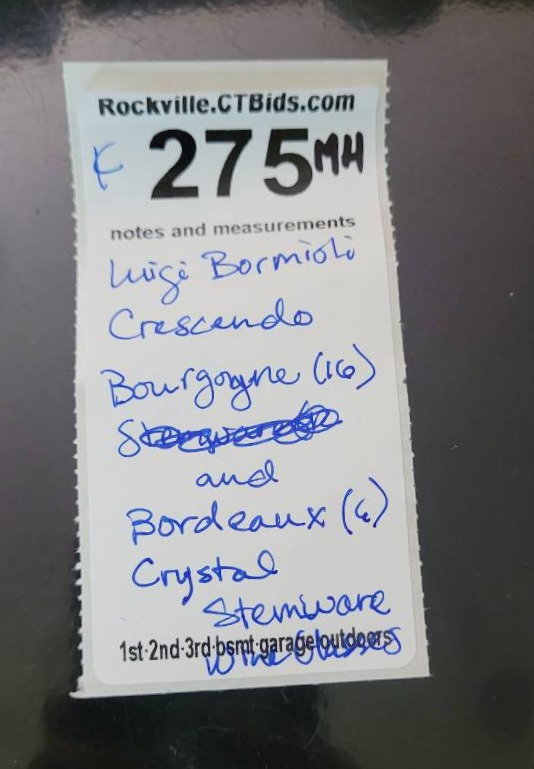 Rockville.CTBids.com
275 MH
notes and measurements
Luigi Bormioli
Crescendo
Bourgogne (16)
and
Bordeaux (6)
Crystal
Stemware
1st·2nd·3rd·bsmt·garage/outdoors
Wine Glasses